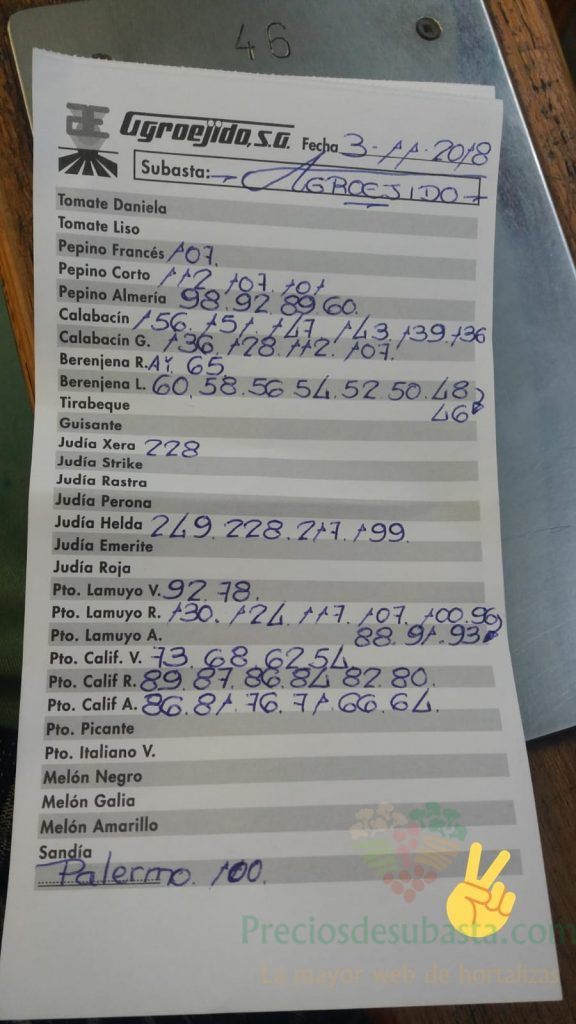 46
Agroejido, S.A. Fecha 3-11-2018
Subasta: AGROEJIDO
Tomate Daniela
Tomate Liso
Pepino Francés 107.
Pepino Corto 112. 107. 101
Pepino Almería 98. 92. 89. 60.
Calabacín 156. 151. 147. 143. 139. 136
Calabacín G. 136. 128. 112. 107.
Berenjena R. 65.
Berenjena L. 60. 58. 56. 54. 52. 50. 48
46
Tirabeque
Guisante
Judía Xera 228
Judía Strike
Judía Rastra
Judía Perona
Judía Helda 249. 228. 217. 199.
Judía Emerite
Judía Roja
Pto. Lamuyo V. 92. 78.
Pto. Lamuyo R. 130. 124. 117. 107. 100. 96
88. 91. 93
Pto. Lamuyo A.
Pto. Calif. V. 73. 68. 62. 54
Pto. Calif R. 89. 87. 86. 84. 82. 80.
Pto. Calif A. 86. 81. 76. 71. 66. 64.
Pto. Picante
Pto. Italiano V.
Melón Negro
Melón Galia
Melón Amarillo
Sandía
Palermo. 100.
Preciosdesubasta.com
La mayor web de hortalizas